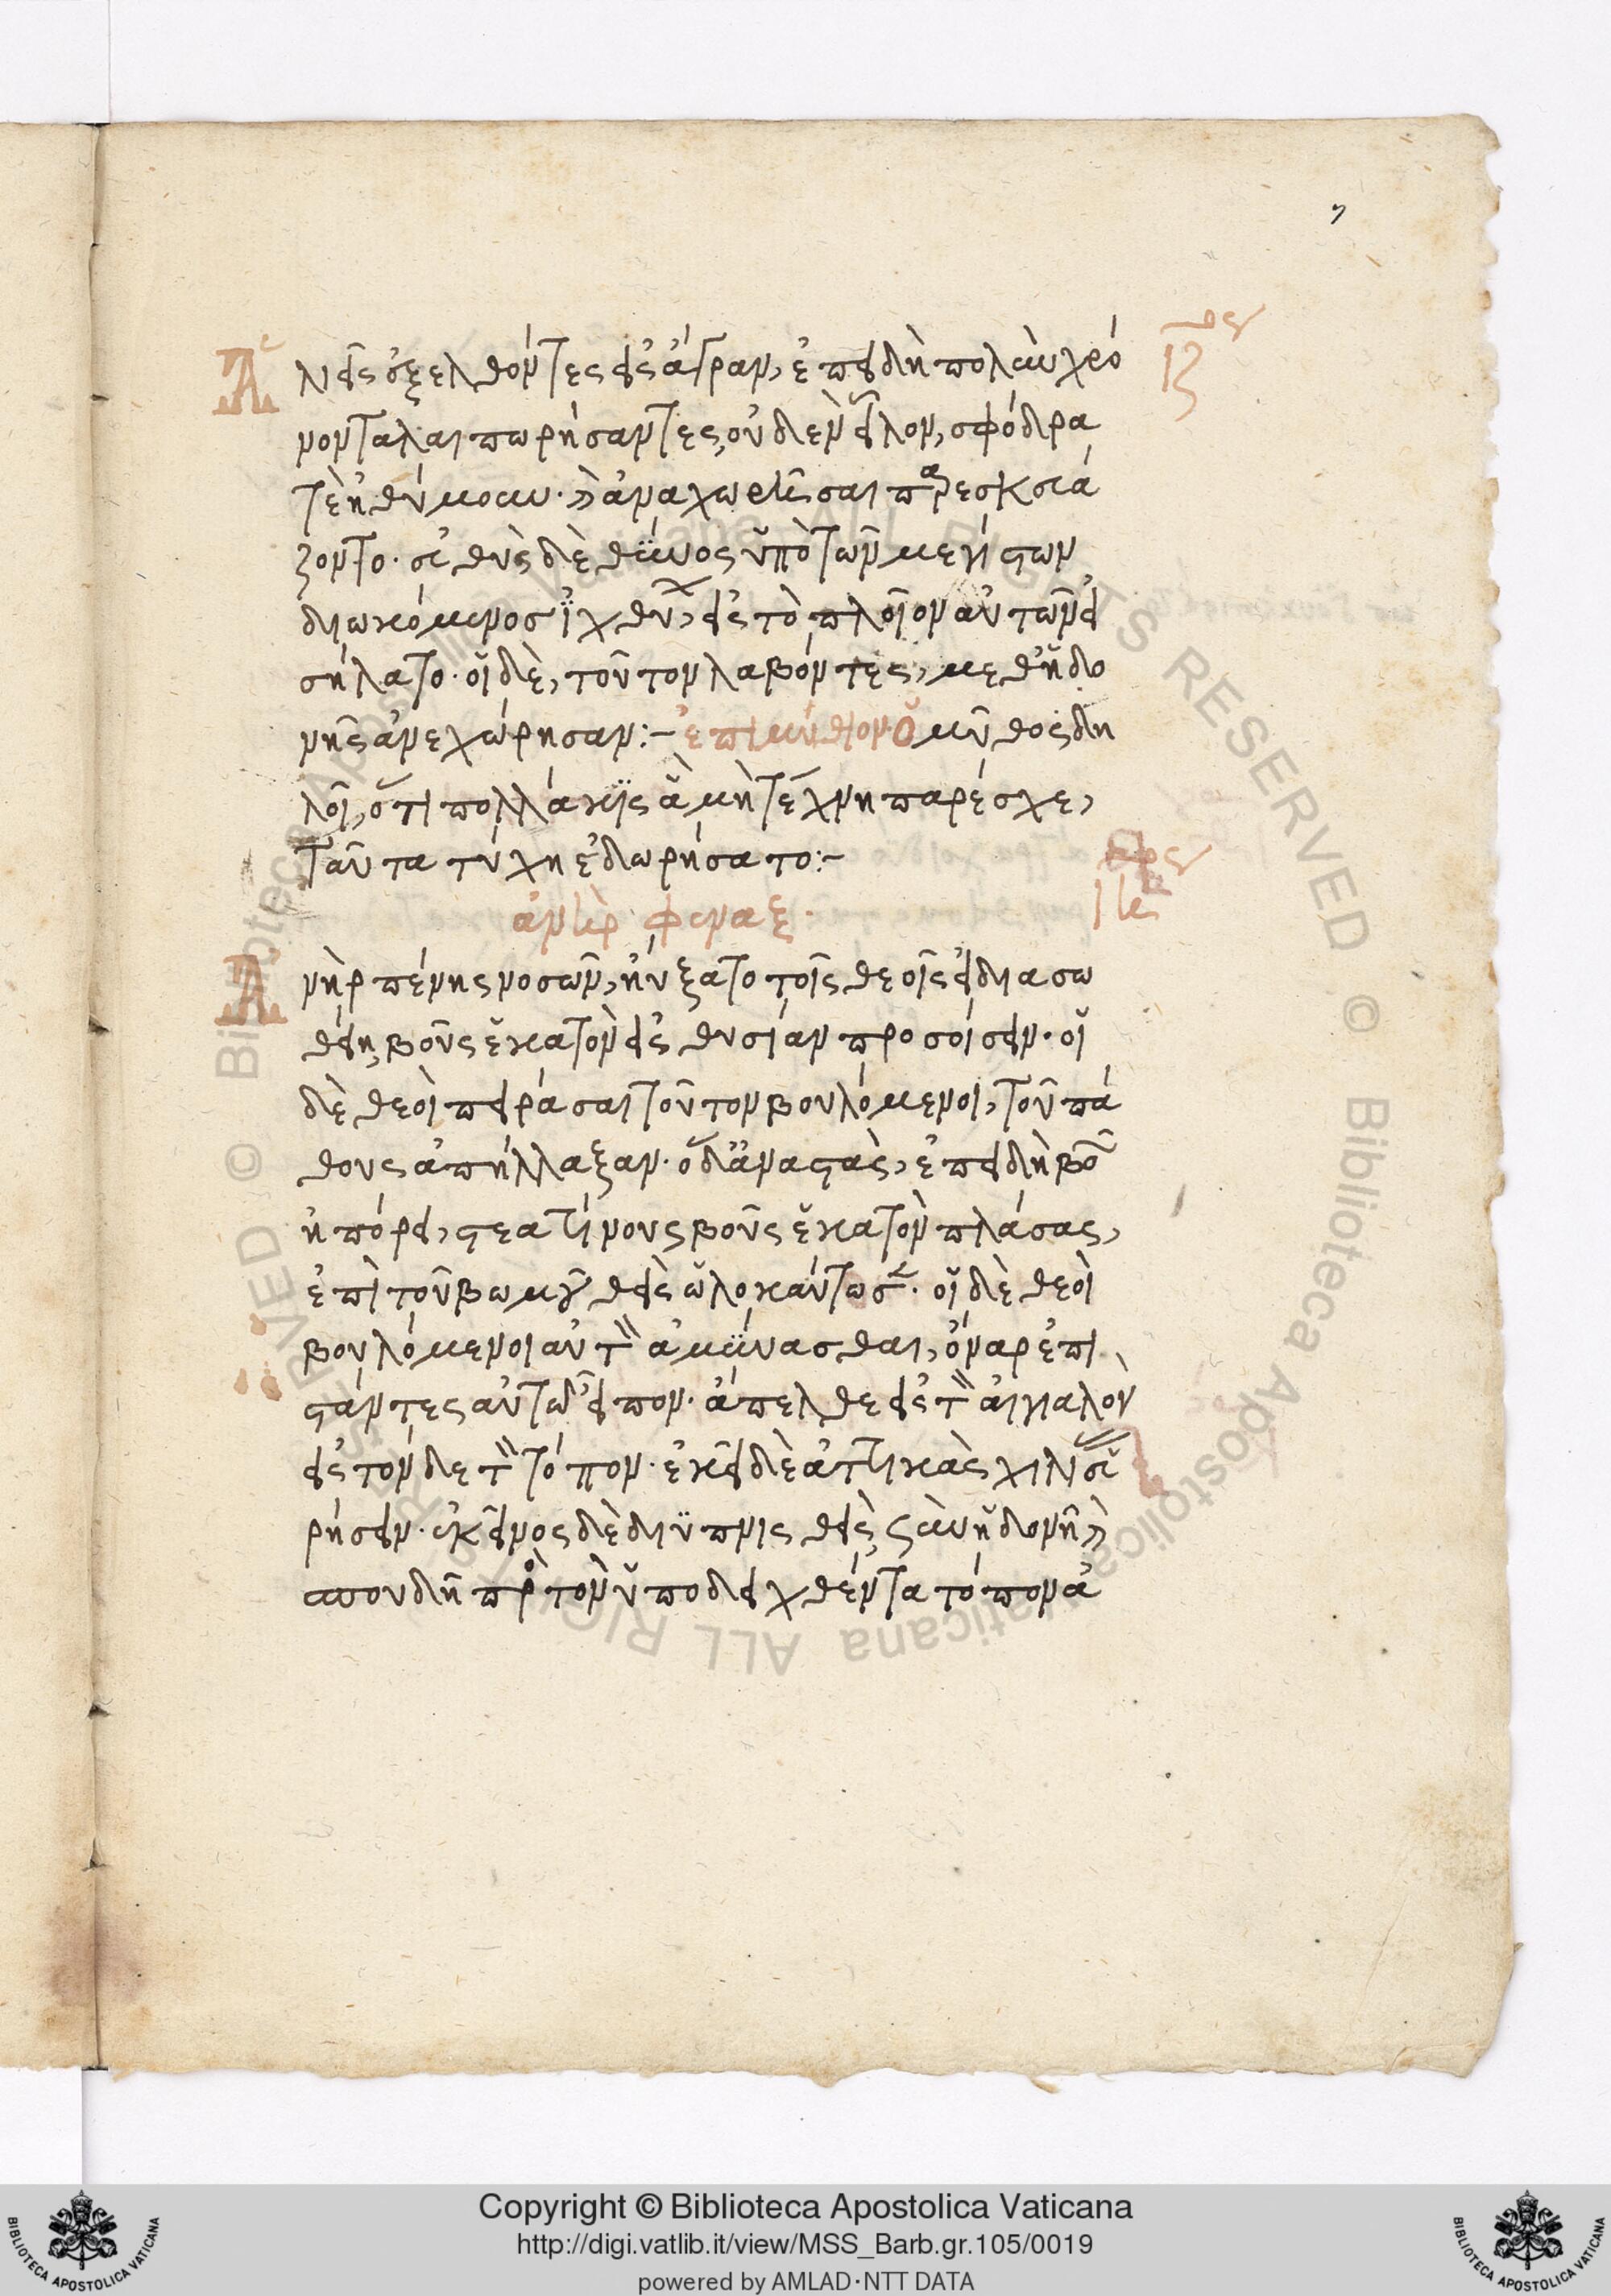 Ἁλιεῖς ἐξελθόντες εἰς ἄγραν, ἐπειδὴ πολὺν χρό
νον ταλαιπωρήσαντες, οὐδὲν εἷλον, σφόδρα
τὲ ἠθύμουν· καὶ ἀναχωρῆσαι παρεσκευά
ζοντο· εὐθὺς δὲ θύννος ὑπὸ τῶν μεγίστων
διωκόμενος ἰχθύων, εἰς τὸ πλοῖον αὐτῶν εἰ
σήλατο· οἱ δὲ, τοῦτον λαβόντες, μεθ' ἡδο
νῆς ἀνεχώρησαν:- ἐπιμύθιον· Ὁ μῦθος δη
λοῖ, ὅτι πολλάκις ἃ μὴ τέχνη παρέσχε,
ταῦτα τύχη ἐδωρήσατο:-
ἀνὴρ φέναξ·
Ἀνὴρ πένης νοσῶν, ηὔξατο τοῖς θεοῖς εἰ διασω
θείη, βοῦς ἑκατὸν εἰς θυσίαν προσοίσειν· οἱ
δὲ θεοὶ πειράσαι τοῦτον βουλόμενοι, τοῦ πά
θους ἀπήλλαξαν· ὁ δ' ἀναστὰς, ἐπειδὴ βοῶν
ἠπόρει, στεατίνους βοῦς ἑκατὸν πλάσας,
ἐπὶ τοῦ βωμοῦ θεὶς ὡλοκαύτωσεν· οἱ δὲ θεοὶ
βουλόμενοι αὐτὸν ἀμύνασθαι, ὄναρ ἐπι
στάντες αὐτῶ εἶπον· ἄπελθε εἰς τὸν αἰγιαλὸν
εἰς τόνδε τὸν τόπον· ἐκεῖ δὲ ἀττικὰς χιλίας εὑ
ρήσειν· ἐκεῖνος δὲ διυπνισθεὶς σὺν ἡδονῆ καὶ
σπουδῆ πρὸς τὸν ὑποδειχθέντα τόπον ἀ
Copyright © Biblioteca Apostolica Vaticana
http://digi.vatlib.it/view/MSS_Barb.gr.105/0019
powered by AMLAD·NTT DATA